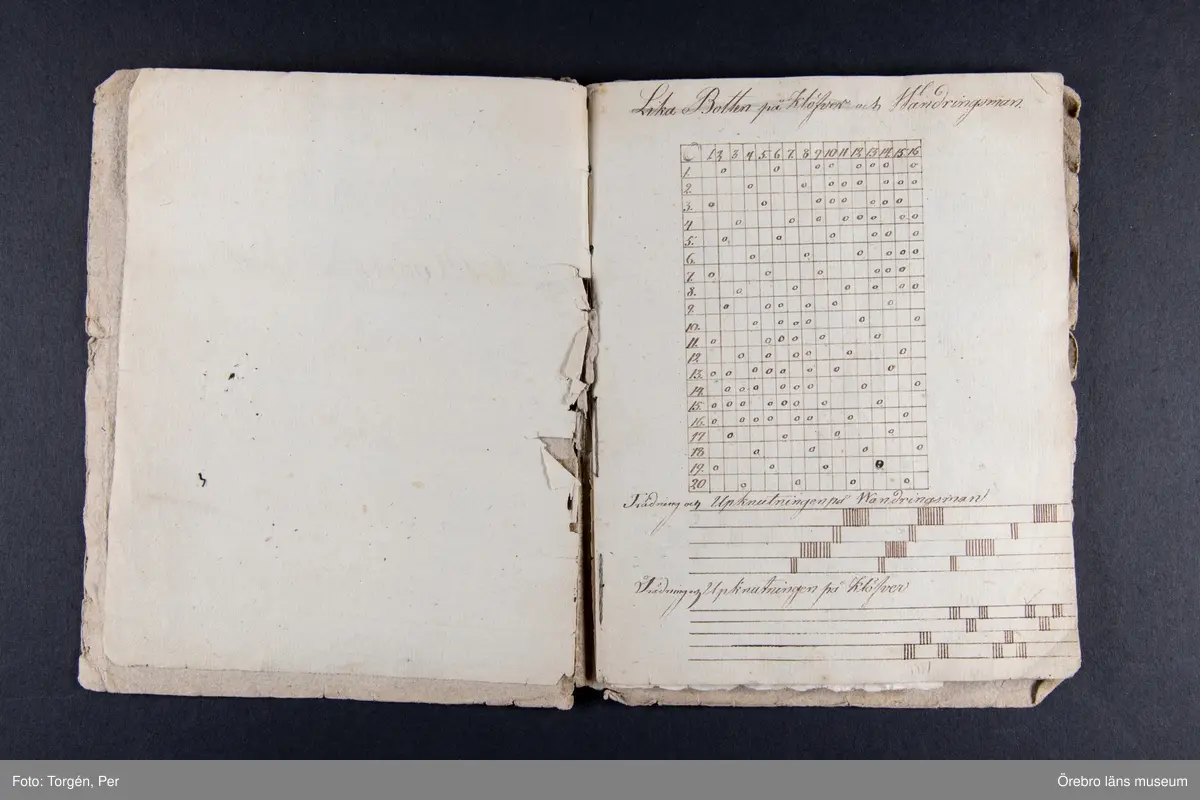 Lika Bottn på Klöfver och Wandringsman
1 2 3 4 5 6 7 8 9 10 11 12 13 14 15 16
1. o o o o o o o o
2. o o o o o o o o
3. o o o o o o o o
4 o o o o o o o o
5. o o o o o o
6. o o o o o o
7. o o o o o o
8. o o o o o o
9. o o o o o o
10. o o o o o o
11. o o o o o o
12 o o o o o o
13. o o o o o o o o
14. o o o o o o o o
15. o o o o o o o o
16. o o o o o o o o
17 o o o o
18 o o o o
19. o o o o
20 o o o o
Trädning och Upknutningen på Wandringsman
Trädning och Upknutningen på Klöfver
Foto: Torgén, Per
Örebro läns museum